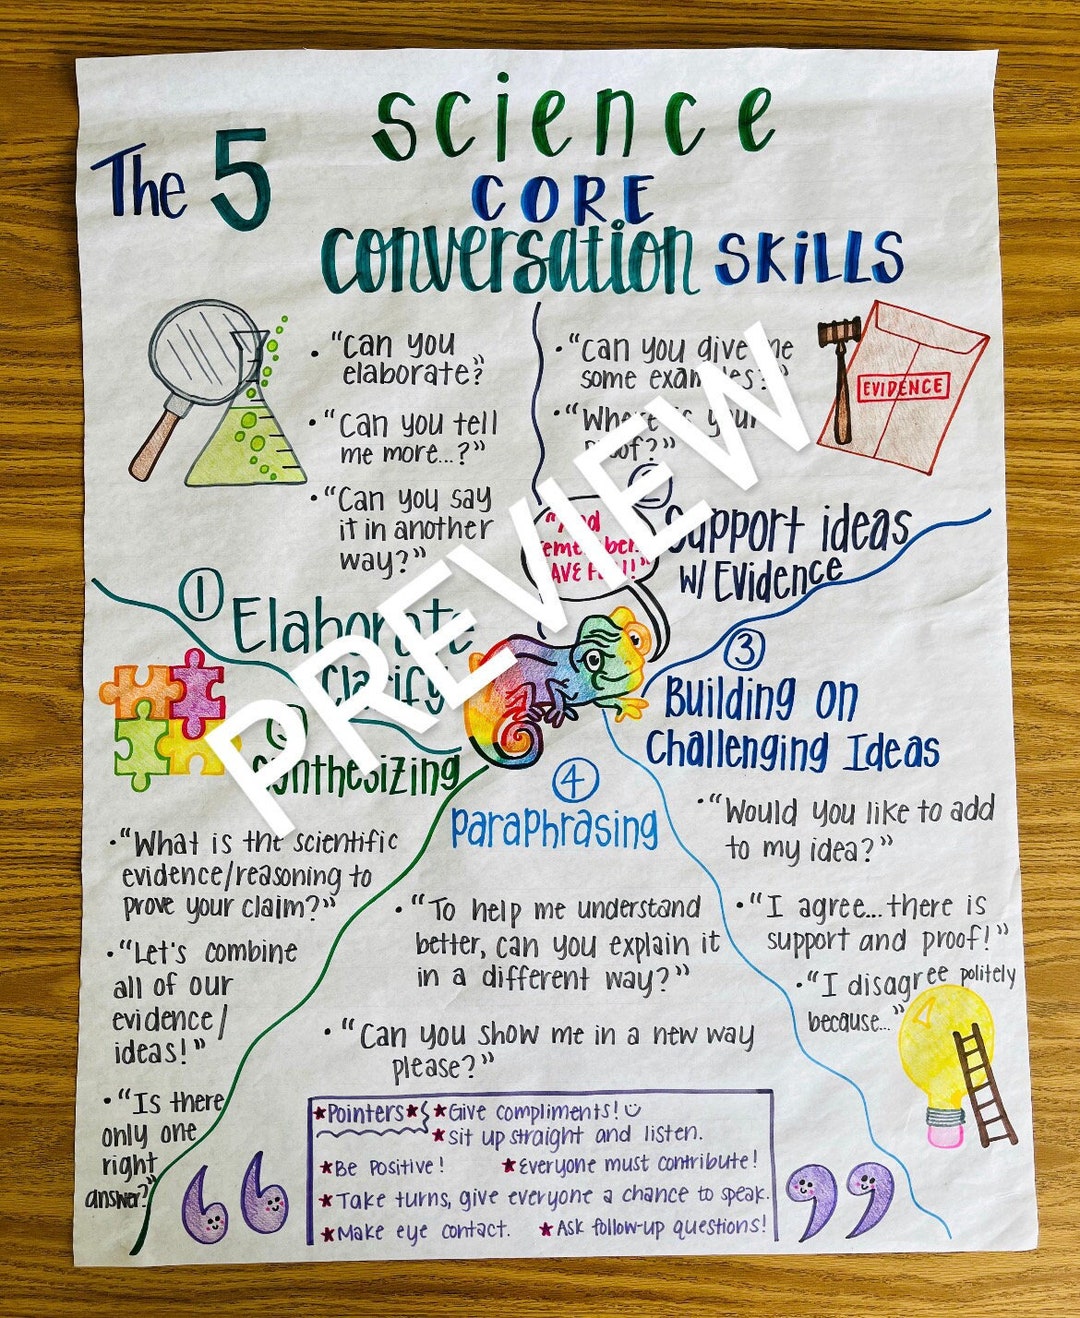 The 5
Science
CORE
Conversation SKiLLS
• "Can you
elaborate?"
• "Can you tell
me more...?"
• "Can you say
it in another
way?"
① Elaborate
Clarify
• "Can you give me
some examples?"
• "Where is your
proof?"
EVIDENCE
Support ideas
w/ Evidence
"And
remember..
HAVE FUN!"
③
Building on
Challenging Ideas
• "Would you like to add
to my idea?"
• "I agree...there is
support and proof!"
• "I disagree politely
because..."
④
Paraphrasing
• "To help me understand
better, can you explain it
in a different way?"
• "Can you show me in a new way
please?"
Synthesizing
• "What is the scientific
evidence/reasoning to
prove your claim?"
• "Let's combine
all of our
evidence/
ideas!"
• "Is there
only one
right
answer?"
★Pointers★ ★Give compliments!
★sit up straight and listen.
★Be Positive! ★Everyone must contribute!
★Take turns, give everyone a chance to speak.
★Make eye contact. ★Ask follow-up questions!
PREVIEW